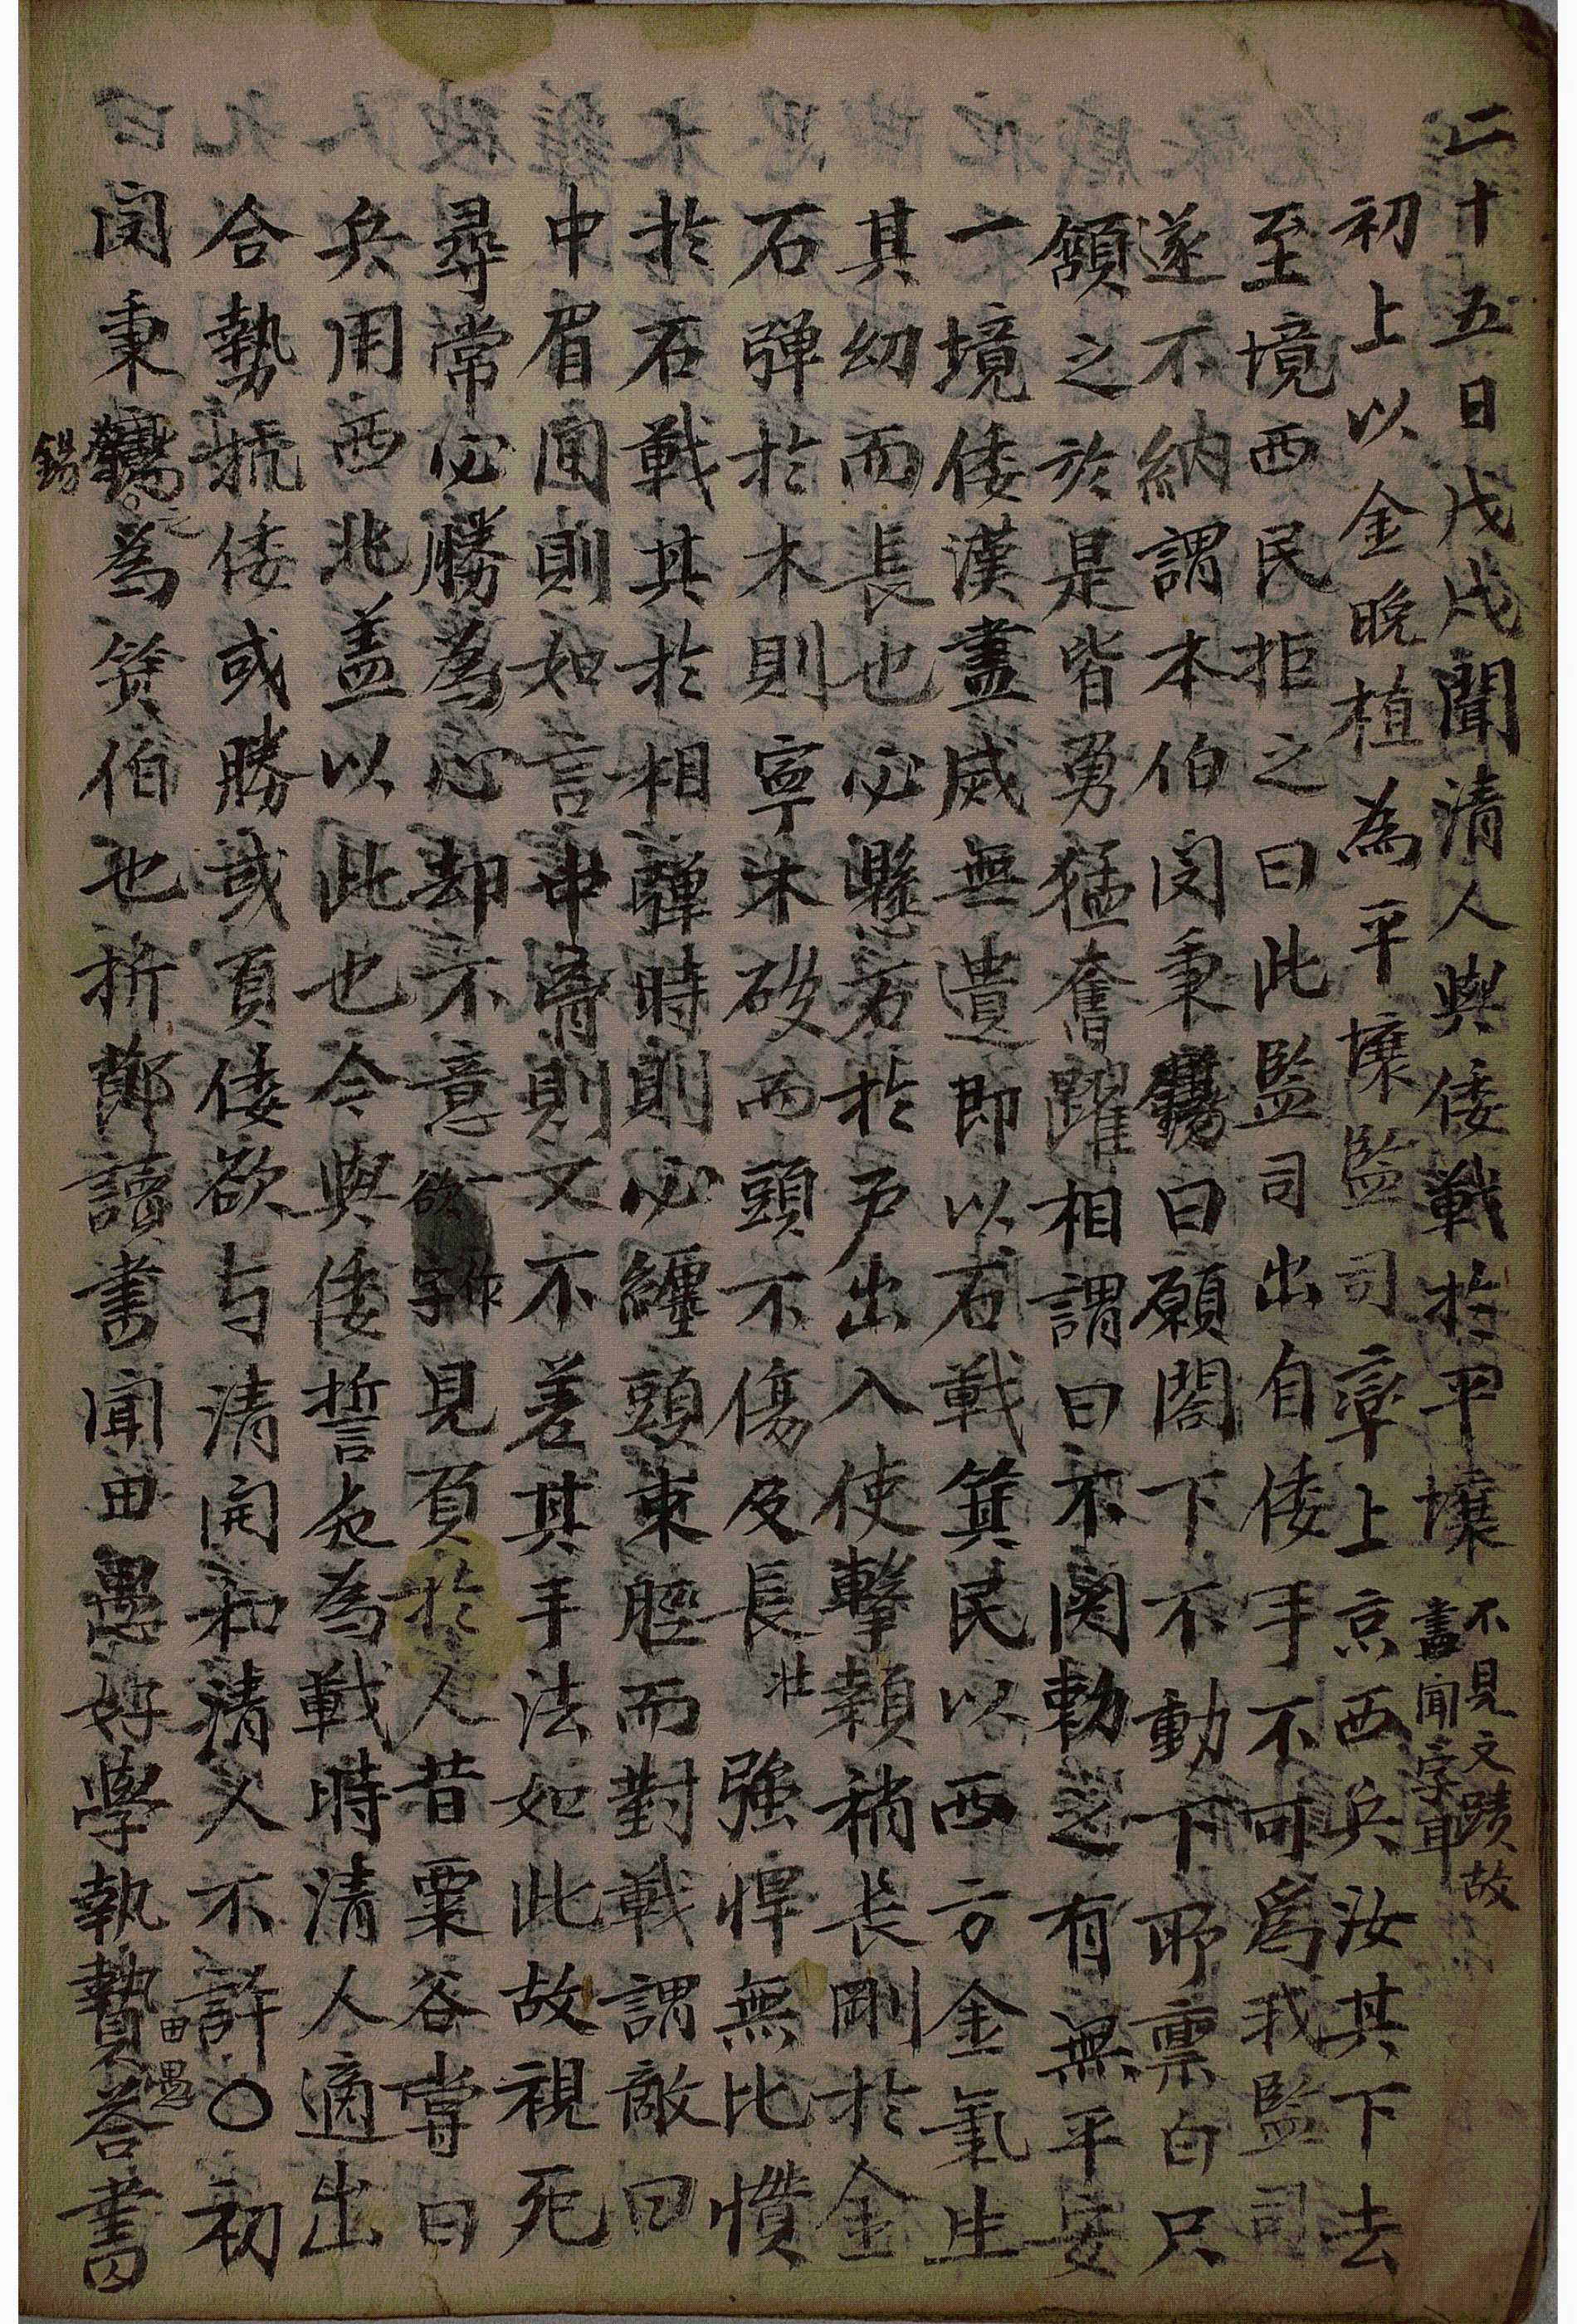 二十五日戊戌聞清人與倭戰於平壤不見文蹟故書聞字耳
初上以金晩植為平壤監司辛上京西兵汝其下去
至境西民拒之曰此監司出自倭手不可為我監司
遂不納謂本伯閔秉曰願閤下不動下所稟白只
頷之於是皆勇猛奮躍相謂曰不関勅之有無平安
一境倭漢盡威無遺即以石戰箕民以西方金氣生
其幼而長也必懸石於戶出入使擊顙稍長剛於金
石弾於木則寧木破而頭不傷及長壯強悍無比憤
於石戰其於相彈時則必纏頭束脛而對戰謂敵曰
中眉圓則如言中脊則又不差其手法如此故視死
尋常必勝為心却不意一作欲字見負於人昔粟谷嘗曰
兵用西北盖以此也今與倭誓免為戰時清人適出
合勢抗倭或勝或負倭欲与清開和清人不許〇初
閔秉錫之為箕伯也折節讀書聞田愚好學執贄田愚答書曰